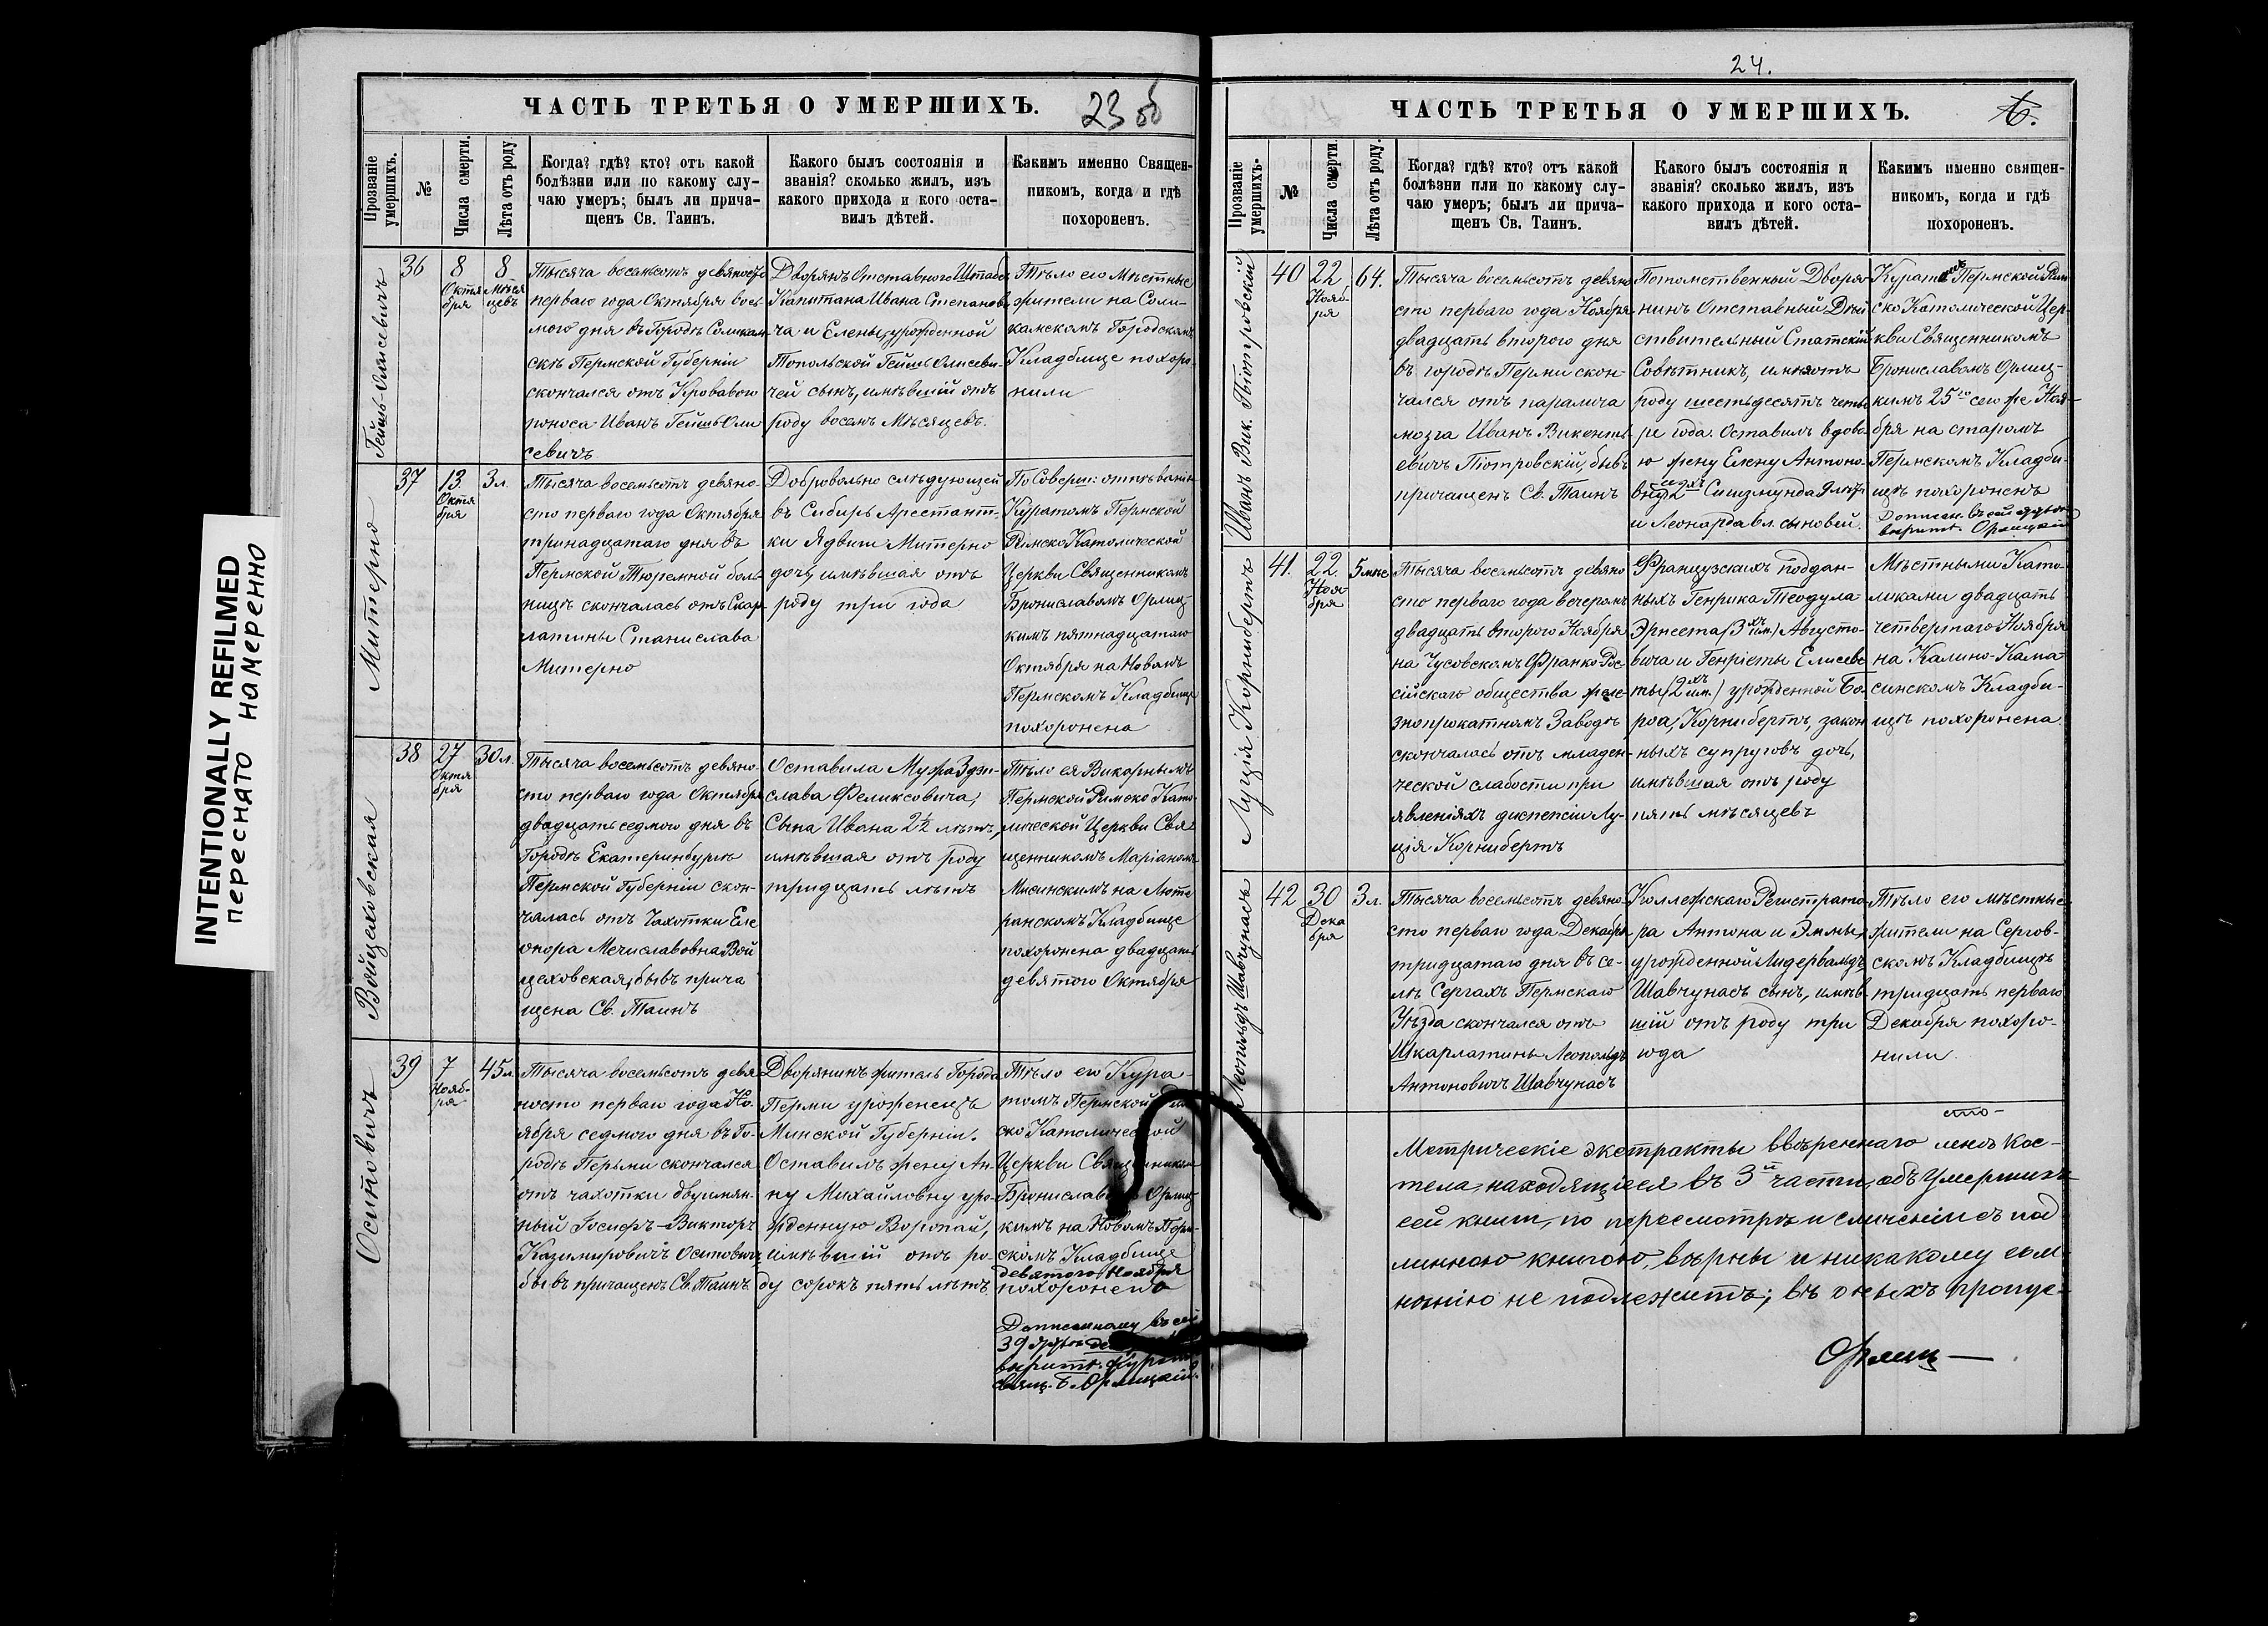 INTENTIONALLY REFILMED
переснято намеренно
ЧАСТЬ ТРЕТЬЯ О УМЕРШИХЪ.
23 об
Прозваніе умершихъ.
№
Числа смерти.
Лѣта отъ роду
Когда? гдѣ? кто? отъ какой
болѣзни или по какому слу-
чаю умеръ; былъ ли прича-
щенъ Св. Таинъ.
Какого былъ состоянія и
званія? сколько жилъ, изъ
какого прихода и кого оста-
вилъ дѣтей.
Какимъ именно Священ-
никомъ, когда и гдѣ
похороненъ.
Гейшъ-Олисевичъ
36
8
Октя
бря
8
Мѣся
цевъ
Тысяча восемьсотъ девяносто
перваго года Октября вось
мого дня въ Городѣ Соликам-
скѣ Пермской Губерніи
скончался отъ Кроваваго
поноса Иванъ Гейшъ Оли
севичъ
Дворянъ Отставного Штабсъ
Капитана Ивана Степанови
ча и Елены, урожденной
Топольской Гейшъ Олисеви-
чей сынъ, имѣвшій отъ
роду восемь Мѣсяцевъ.
Тѣло его Мѣстные
жители на Соли-
камскомъ Городскомъ
Кладбище похоро-
нили
Митерно
37
13
Октя
бря
3 л.
Тысяча восемьсотъ девяно-
сто перваго года Октября
тринадцатаго дня въ
Пермской Тюремной боль
ницѣ скончалась отъ Скар-
латины Станислава
Митерно
Добровольно слѣдующей
въ Сибирь Арестант-
ки Ядвиги Митерно
дочь, имѣвшая отъ
роду три года
По Соверш: отпѣваніи
Куратомъ Пермской
Римско Католической
Церкви Священникомъ
Брониславомъ Орлиц-
кимъ пятнадцатаго
Октября на Новомъ
Пермскомъ Кладбище
похоронена
Войцеховская
38
27
Октя
бря
30 л.
Тысяча восемьсотъ девяно-
сто перваго года Октября
двадцать седмого дня въ
Городѣ Екатеринбургѣ
Пермской Губерніи скон-
чалась отъ Чахотки Еле
онора Мечиславовна Вой
цеховская, бывъ прича
щена Св. Таинъ
Оставила Мужа Здзи-
слава Феликсовича,
Сына Ивана 2½ лѣтъ,
имѣвшая отъ роду
тридцать лѣтъ
Тѣло ея Викарнымъ
Пермской Римско Като-
лической Церкви Свя-
щенникомъ Маріаномъ
на Люте
ранскомъ Кладбище
похоронена двадцать
девятого Октября
Осиповичъ
39
7
Нояб-
ря
45 л.
Тысяча восемьсотъ девя
носто перваго года Но-
ября седмого дня въ Го-
родѣ Перьми скончался
отъ чахотки двуимян-
ный Госифъ-Викторъ
Казимировичъ Осиповичъ,
бывъ причащенъ Св. Таинъ
Дворянинъ житель Города
Перми уроженецъ
Минской Губерніи.
Оставилъ жену Ан-
ну Михайловну уро-
жденную Воропай,
имѣвшій отъ ро-
ду сорокъ пять лѣтъ
Тѣло его Кура-
томъ Пермской
ско Католической
Церкви Священникомъ
Брониславомъ Орлиц-
кимъ на Новомъ Перм-
скомъ Кладбище
девятого Ноября
похоронено
Дописанному въ сей
39
вѣрить.
Свящ. Б. Орлицкій.
24.
ЧАСТЬ ТРЕТЬЯ О УМЕРШИХЪ.
Прозваніе умершихъ.
№
Числа смерти.
Лѣта отъ роду.
Когда? гдѣ? кто? отъ какой
болѣзни или по какому слу-
чаю умеръ; былъ ли прича-
щенъ Св. Таинъ.
Какого былъ состоянія и
званія? сколько жилъ, изъ
какого прихода и кого оста-
вилъ дѣтей.
Какимъ именно священ-
никомъ, когда и гдѣ
похороненъ.
Иванъ Вик. Піотровскій
40
22
Нояб-
ря
64.
Тысяча восемьсотъ девяно
сто перваго года Ноября
двадцать второго дня
въ городѣ Перми скон-
чался отъ паралича
мозга Иванъ Викенть-
евичъ Піотровскій, бывъ
причащенъ Св. Таинъ
Потомственный Дворя
нинъ Отставный Дѣй
ствительный Статскій
Совѣтникъ, имѣя отъ
роду шестьдесятъ четы
ре года. Оставилъ вдово
ю жену Елену Антоно-
Сигизмунда
и Леонарда сыновей.
Куратомъ Пермской Рим
ско Католической Цер-
кви Священникомъ
Брониславомъ Орлиц-
кимъ 25го сего же Ноя-
бря на старомъ
Пермскомъ Кладби-
щѣ похороненъ
Дописан. въ сей
вѣрить. Орлицкій
Луція Корниберть
41.
22
Ноя
бря
5 мѣс
Тысяча восемьсотъ девяно
сто перваго года вечеромъ
двадцать второго Ноября
на Чусовскомъ Франко-Рос
сійскаго общества желе-
знопрокатномъ Заводѣ
скончалась отъ младен-
ческой слабости при
явленіяхъ диспепсіи Лу-
ція Корниберть
Французскихъ поддан-
ныхъ Генрика Теодула
Эрнеста (3хъ им.) Августо-
вича и Генріеты Елисаве
ты (2хъ им.) урожденной
Корниберть, закон
ныхъ супруговъ дочь,
имѣвшая отъ роду
пять мѣсяцевъ
Мѣстными Като-
ликами двадцать
четвертаго Ноября
на Калино-Кама-
синскомъ Кладби-
щѣ похоронена
Леопольдъ Шавчунасъ
42
30
Дека
бря
3 л.
Тысяча восемьсотъ девяно-
сто перваго года Декабря
тридцатаго дня въ се-
лѣ Сергахъ Пермскаго
Уѣзда скончался отъ
Шкарлатины Леопольдъ
Антоновичъ Шавчунасъ
Коллежскаго Регистрато-
ра Антона и Эммы,
урожденной Лидервальдъ
Шавчунасъ сынъ, имѣв-
шій отъ роду три
года
Тѣло его мѣстные
жители на Сергов-
скомъ Кладбищѣ
тридцать перваго
Декабря похоро-
нили.
Метрическіе экстракты ввѣреннаго мнѣ Кос-
тела, находящіеся въ 3й части, объ умершихъ
сей книги, по пересмотрѣ и сличеніи съ под
линною книгою, вѣрны и никакому сом-
нѣнію не подлежитъ; въ оныхъ пропус-
Орлиц—